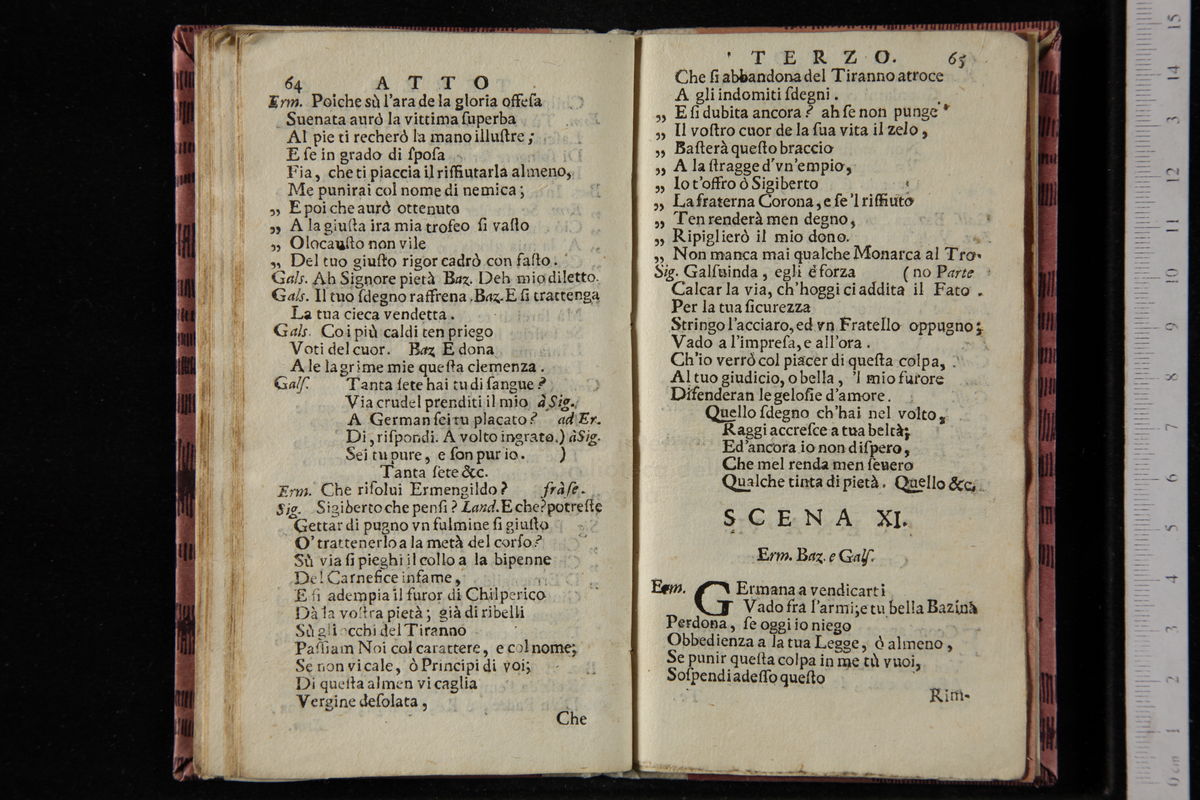 64 ATTO
Erm. Poiche sù l'ara de la gloria offesa
Suenata aurò la vittima superba
Al pie ti recherò la mano illustre;
E se in grado di sposa
Fia, che ti piaccia il riffiutarla almeno,
Me punirai col nome di nemica;
„ E poi che aurò ottenuto
„ A la giusta ira mia trofeo sì vasto
„ Olocausto non vile
„ Del tuo giusto rigor cadrò con fasto.
Gals. Ah Signore pietà Baz. Deh mio diletto.
Gals. Il tuo sdegno raffrena. Baz. E si trattenga
La tua cieca vendetta.
Gals. Co i più caldi ten priego
Voti del cuor. Baz E dona
A le lagrime mie questa clemenza.
Galſ. Tanta sete hai tu di sangue?
Via crudel prenditi il mio à Sig.
A German sei tu placato? ad Er.
Di, rispondi. A volto ingrato.) à Sig.
Sei tu pure, e son pur io. )
Tanta sete &c.
Erm. Che risolui Ermengildo? frà se.
Sig. Sigiberto che pensi? Land. E che? potreste
Gettar di pugno vn fulmine sì giusto
O' trattenerlo a la metà del corso?
Sù via si pieghi il collo a la bipenne
Del Carnefice infame,
E si adempia il furor di Chilperico
Dà la vostra pietà; già di ribelli
Sù gli occhi del Tiranno
Passiam Noi col carattere, e col nome;
Se non vi cale, ò Principi di voi;
Di questa almen vi caglia
Vergine desolata,
Che
TERZO. 65
Che si abbandona del Tiranno atroce
A gli indomiti sdegni.
„ E si dubita ancora? ah se non punge
„ Il vostro cuor de la sua vita il zelo,
„ Basterà questo braccio
„ A la stragge d'vn'empio,
„ Io t'offro ò Sigiberto
„ La fraterna Corona, e se 'l riffiuto
„ Ten renderà men degno,
„ Ripiglierò il mio dono.
„ Non manca mai qualche Monarca al Tro-
Sig. Galsuinda, egli è forza (no Parte
Calcar la via, ch'hoggi ci addita il Fato.
Per la tua sicurezza
Stringo l'acciaro, ed vn Fratello oppugno;
Vado a l'impresa, e all'ora.
Ch'io verrò col piacer di questa colpa,
Al tuo giudicio, o bella, 'l mio furore
Difenderan le gelosie d'amore.
Quello sdegno ch'hai nel volto,
Raggi accresce a tua beltà;
Ed'ancora io non dispero,
Che mel renda men seuero
Qualche tinta di pietà. Quello &c.
SCENA XI.
Erm. Baz. e Galſ.
Erm. GErmana a vendicarti
Vado fra l'armi; e tu bella Bazina
Perdona, se oggi io niego
Obbedienza a la tua Legge, ò almeno,
Se punir questa colpa in me tù vuoi,
Sospendi adesso questo
Rim-
15
14
13
12
11
10
9
8
7
6
5
4
3
2
1
0 cm